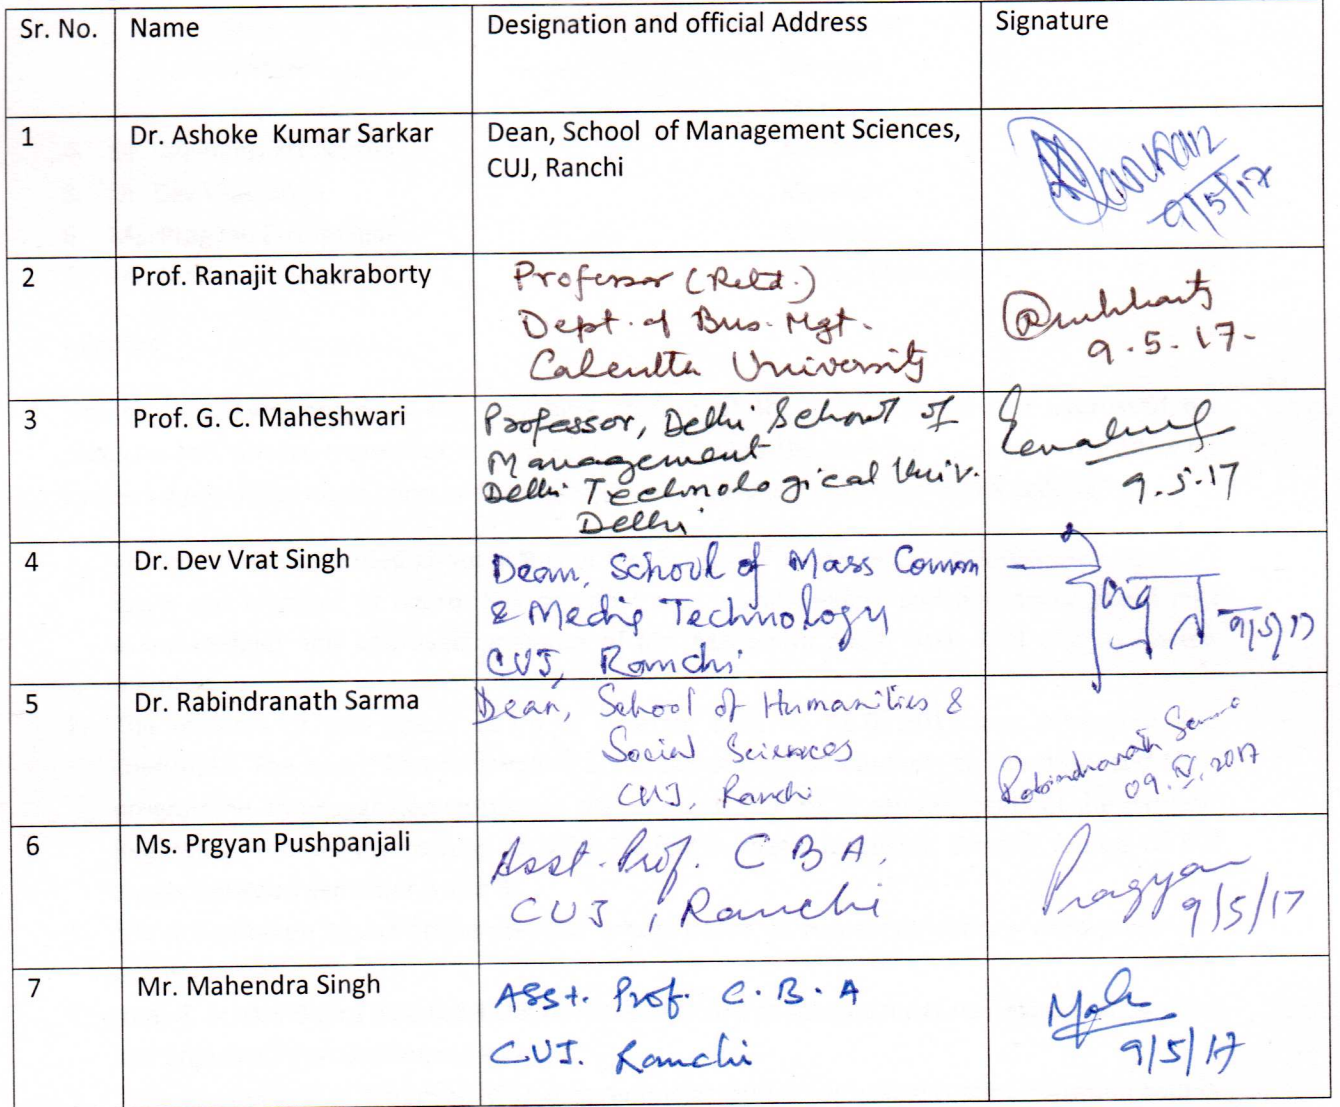 Sr. No. Name Designation and official Address Signature
1 Dr. Ashoke Kumar Sarkar Dean, School of Management Sciences,
CUJ, Ranchi
9/5/17
2 Prof. Ranajit Chakraborty Professor (Retd.)
Dept. of Bus. Mgt.
Calcutta University
9.5.17.
3 Prof. G. C. Maheshwari Professor, Delhi School of
Management
Delhi Technological Univ.
Delhi
9.5.17
4 Dr. Dev Vrat Singh Dean, School of Mass Comm
& Media Technology
CUJ, Ranchi
9/5/17
5 Dr. Rabindranath Sarma Dean, School of Humanities &
Social Sciences
CUJ, Ranchi
Rabindranath Sarma
09.IV.2017
6 Ms. Prgyan Pushpanjali Asst. Prof. C B A.
CUJ, Ranchi
Pragyan
9/5/17
7 Mr. Mahendra Singh Asst. Prof. C.B.A
CUJ. Ranchi
9/5/17